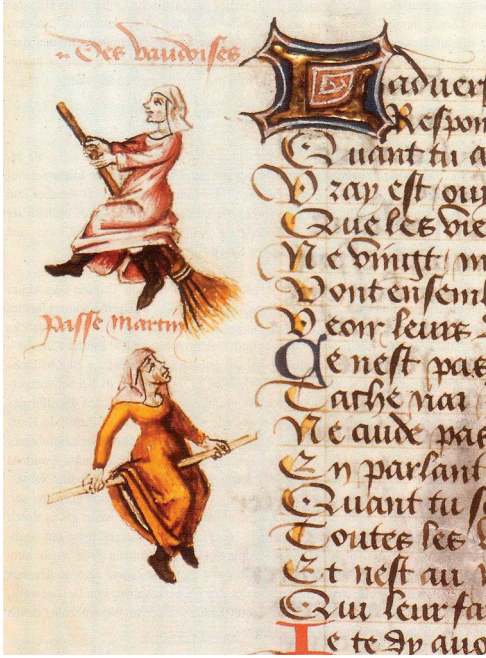 Des vaudoises
passe martin
Ladvers
Respon
Quant tu a
Vray est / ouy
Que les vie
Ne vingt / m
Vont ensembl
Veoir leurs
Ce nest pas
Tache nai
Ne cuide pas
En parlant
Quant tu s
Toutes les
Et nest au
Qui leur fa
Je te dy auo